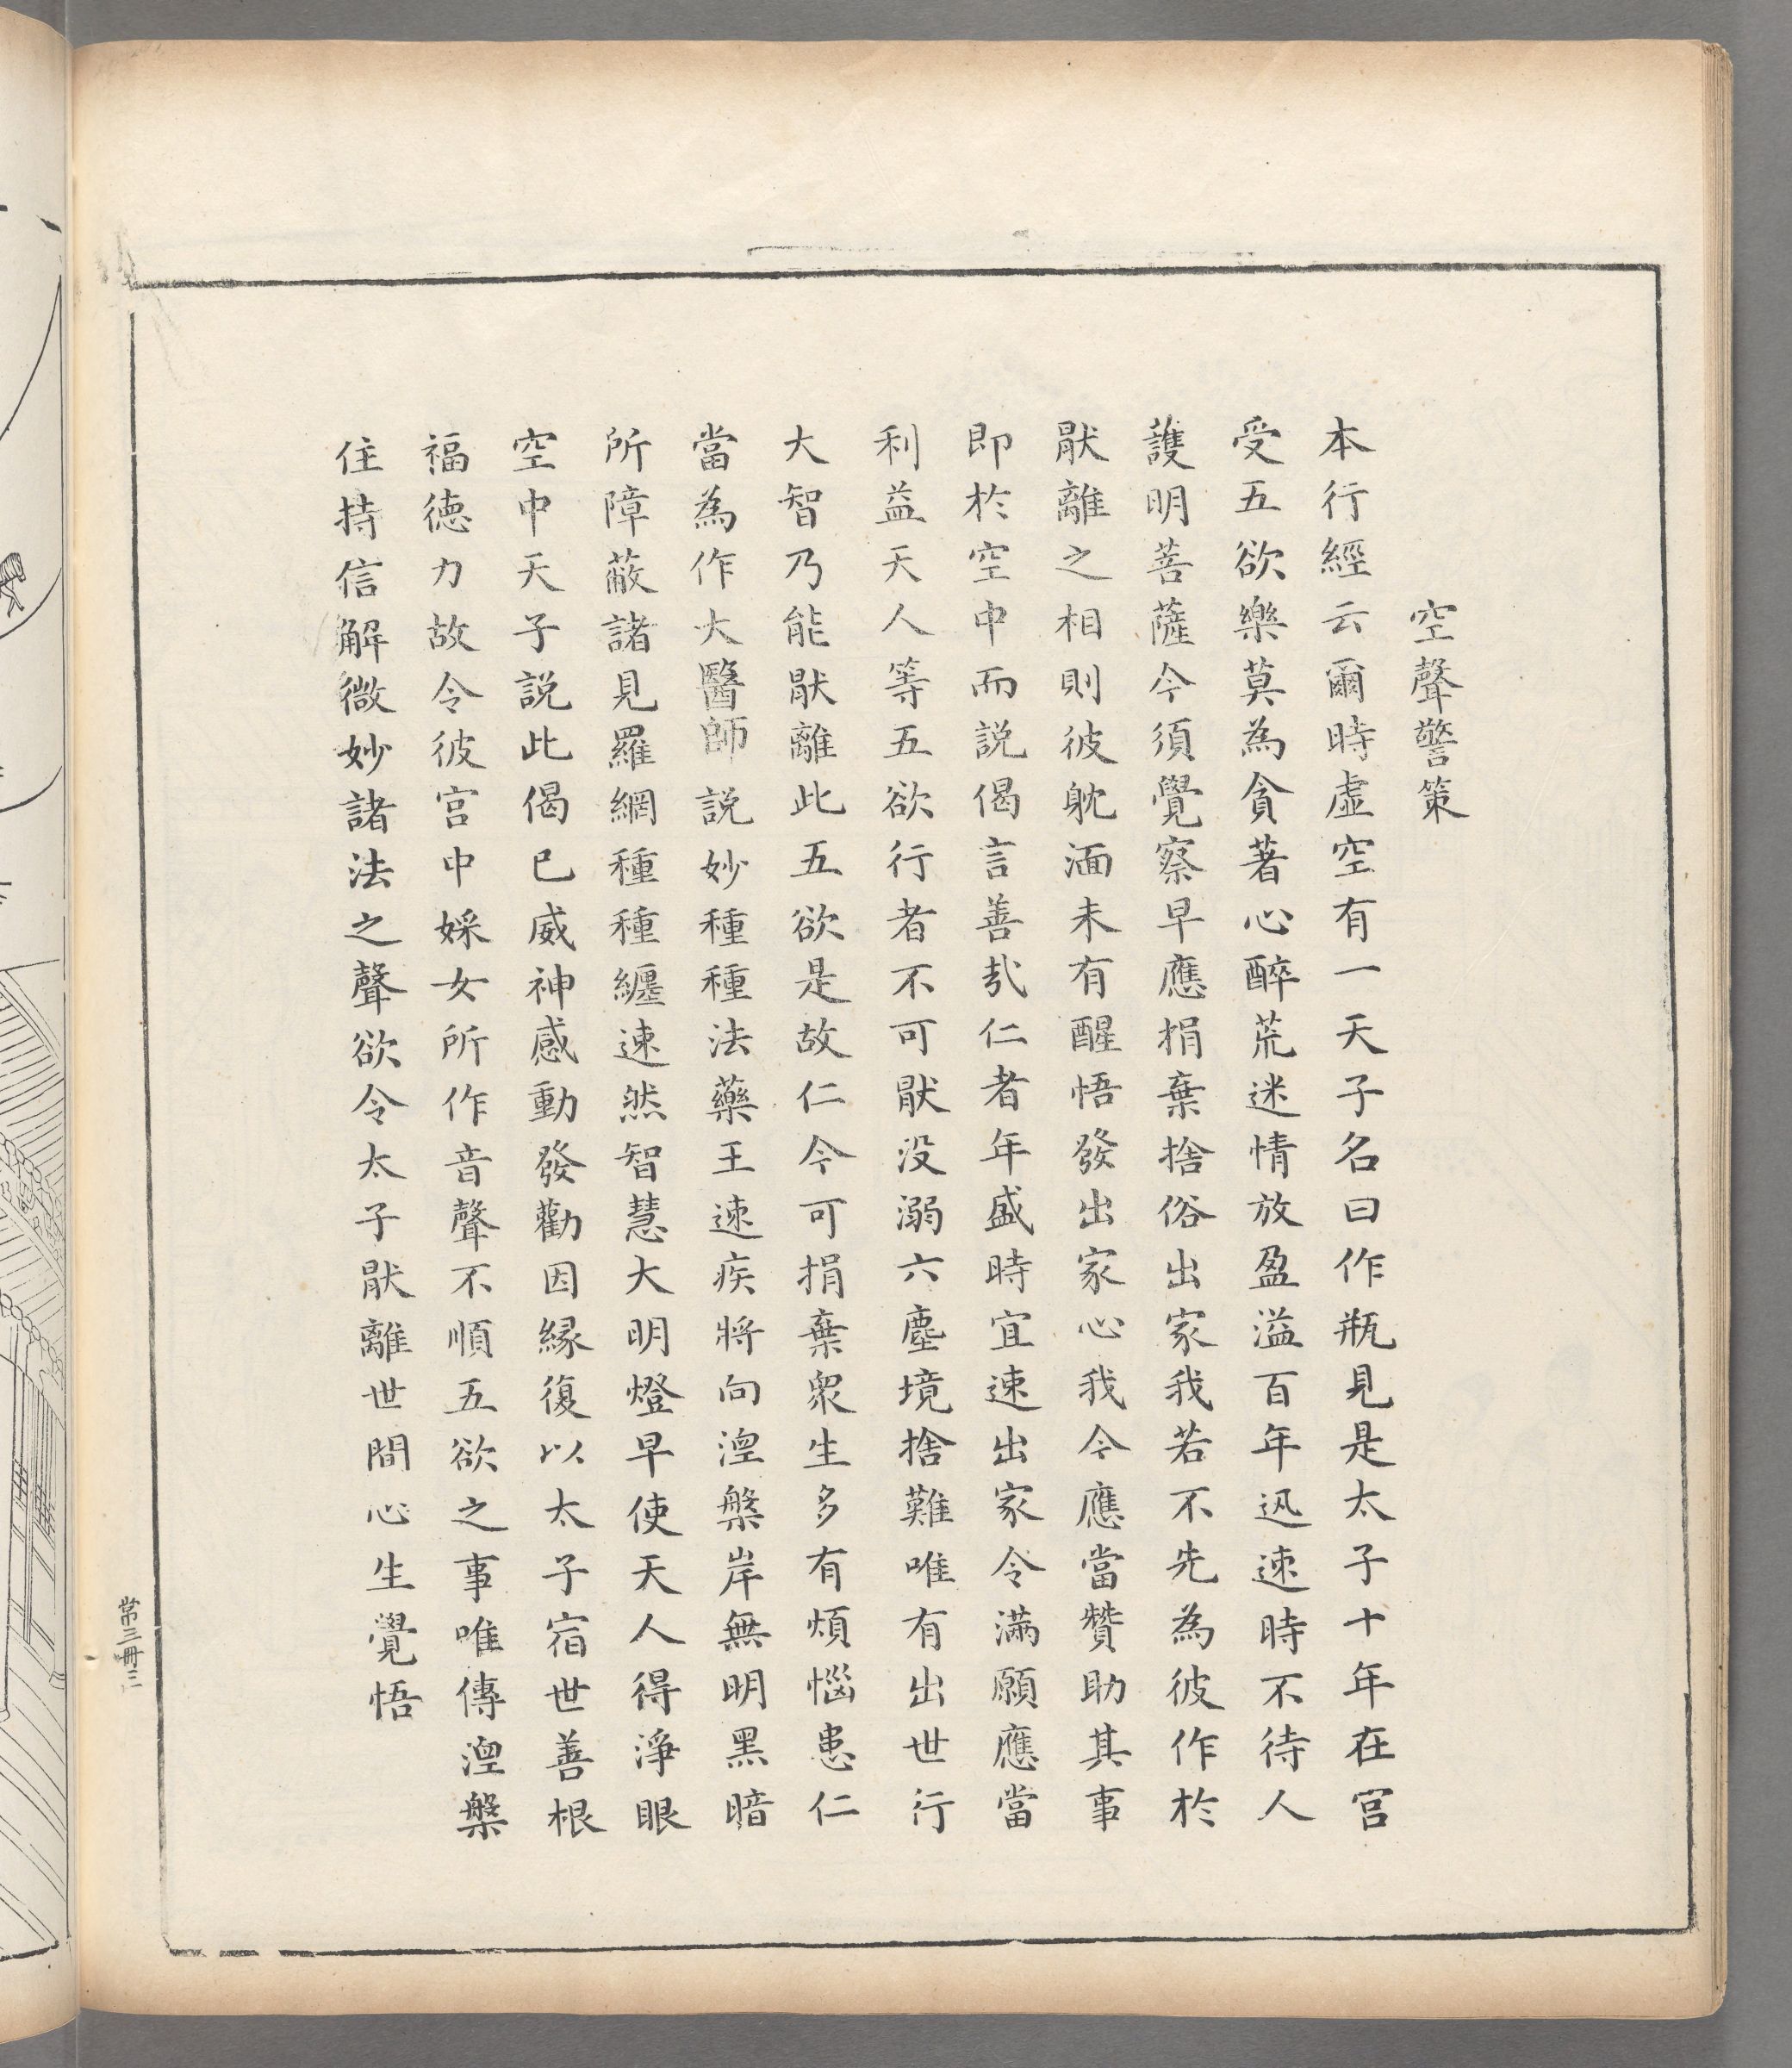 空聲警策
本行經云爾時虛空有一天子名曰作瓶見是太子十年在宮
受五欲樂莫為貪著心醉荒迷情放盈溢百年迅速時不待人
護明菩薩今須覺察早應捐棄捨俗出家我若不先為彼作於
猒離之相則彼躭湎未有醒悟發出家心我今應當贊助其事
即於空中而說偈言善哉仁者年盛時宜速出家令滿願應當
利益天人等五欲行者不可猒沒溺六塵境捨難唯有出世行
大智乃能猒離此五欲是故仁今可捐棄衆生多有煩惱患仁
當為作大醫師說妙種種法藥王速疾將向涅槃岸無明黑暗
所障蔽諸見羅網種種纏速然智慧大明燈早使天人得淨眼
空中天子說此偈已威神感動發勸因縁復以太子宿世善根
福德力故令彼宮中婇女所作音聲不順五欲之事唯傳涅槃
住持信解微妙諸法之聲欲令太子猒離世間心生覺悟
第三冊三